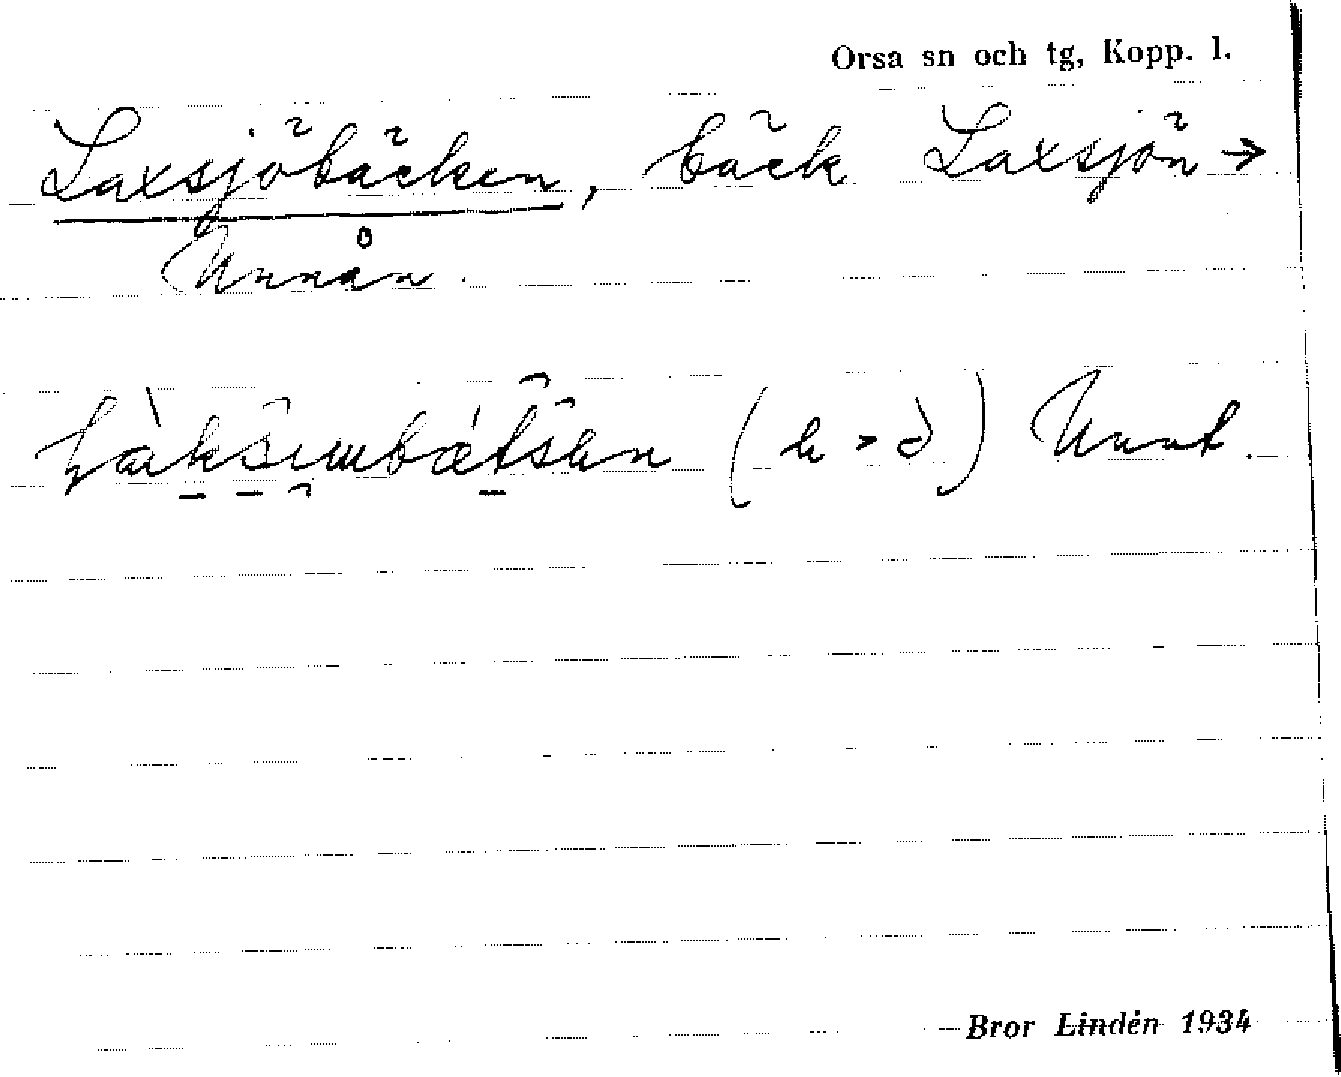 Orsa sn och tg, Kopp. l.
Laxsjöbäcken, bäck Laxsjön →
Unnån.
Bror Lindén 1934